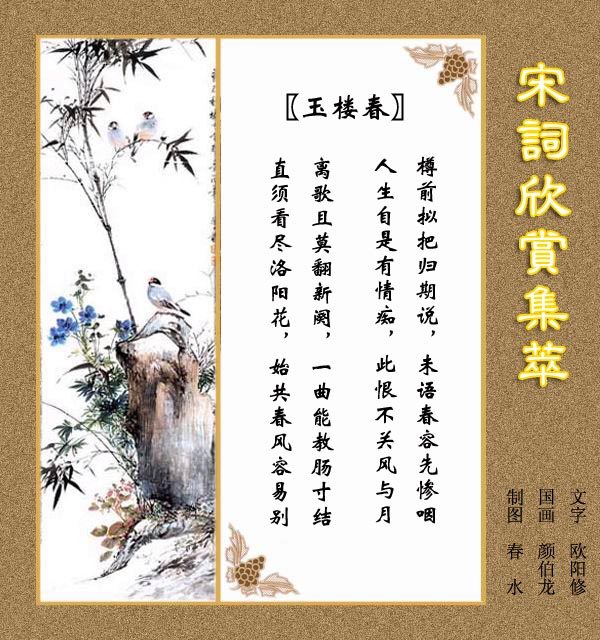 宋詞欣賞集萃
〖玉楼春〗
樽前拟把归期说，未语春容先惨咽
人生自是有情痴，此恨不关风与月
离歌且莫翻新阕，一曲能教肠寸结
直须看尽洛阳花，始共春风容易别
文字 欧阳修
国画 颜伯龙
制图 春水